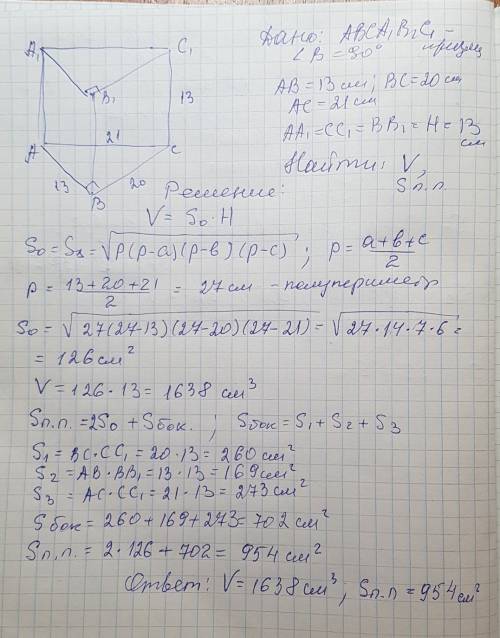 Дано: ABCA₁B₁C₁ –
∠B = 90°
AB = 13 см; BC = 20 см
AC = 21 см
AA₁ = CC₁ = BB₁ = H = 13 см
Найти: V,
Sп.п.
A₁
C₁
B₁
13
21
A
C
13
20
B
Решение:
V = S₀ · H
S₀ = S = √(p(p-a)(p-в)(p-c)) ; p = (a+в+c)/2
p = (13+20+21)/2 = 27 см - полупериметр
S₀ = √(27(27-13)(27-20)(27-21)) = √(27·14·7·6) =
= 126 см²
V = 126 · 13 = 1638 см³
Sп.п. = 2S₀ + Sбок. ; Sбок = S₁ + S₂ + S₃
S₁ = BC · CC₁ = 20 · 13 = 260 см²
S₂ = AB · BB₁ = 13 · 13 = 169 см²
S₃ = AC · CC₁ = 21 · 13 = 273 см²
Sбок = 260 + 169 + 273 = 702 см²
Sп.п. = 2 · 126 + 702 = 954 см²
Ответ: V = 1638 см³; Sп.п = 954 см²